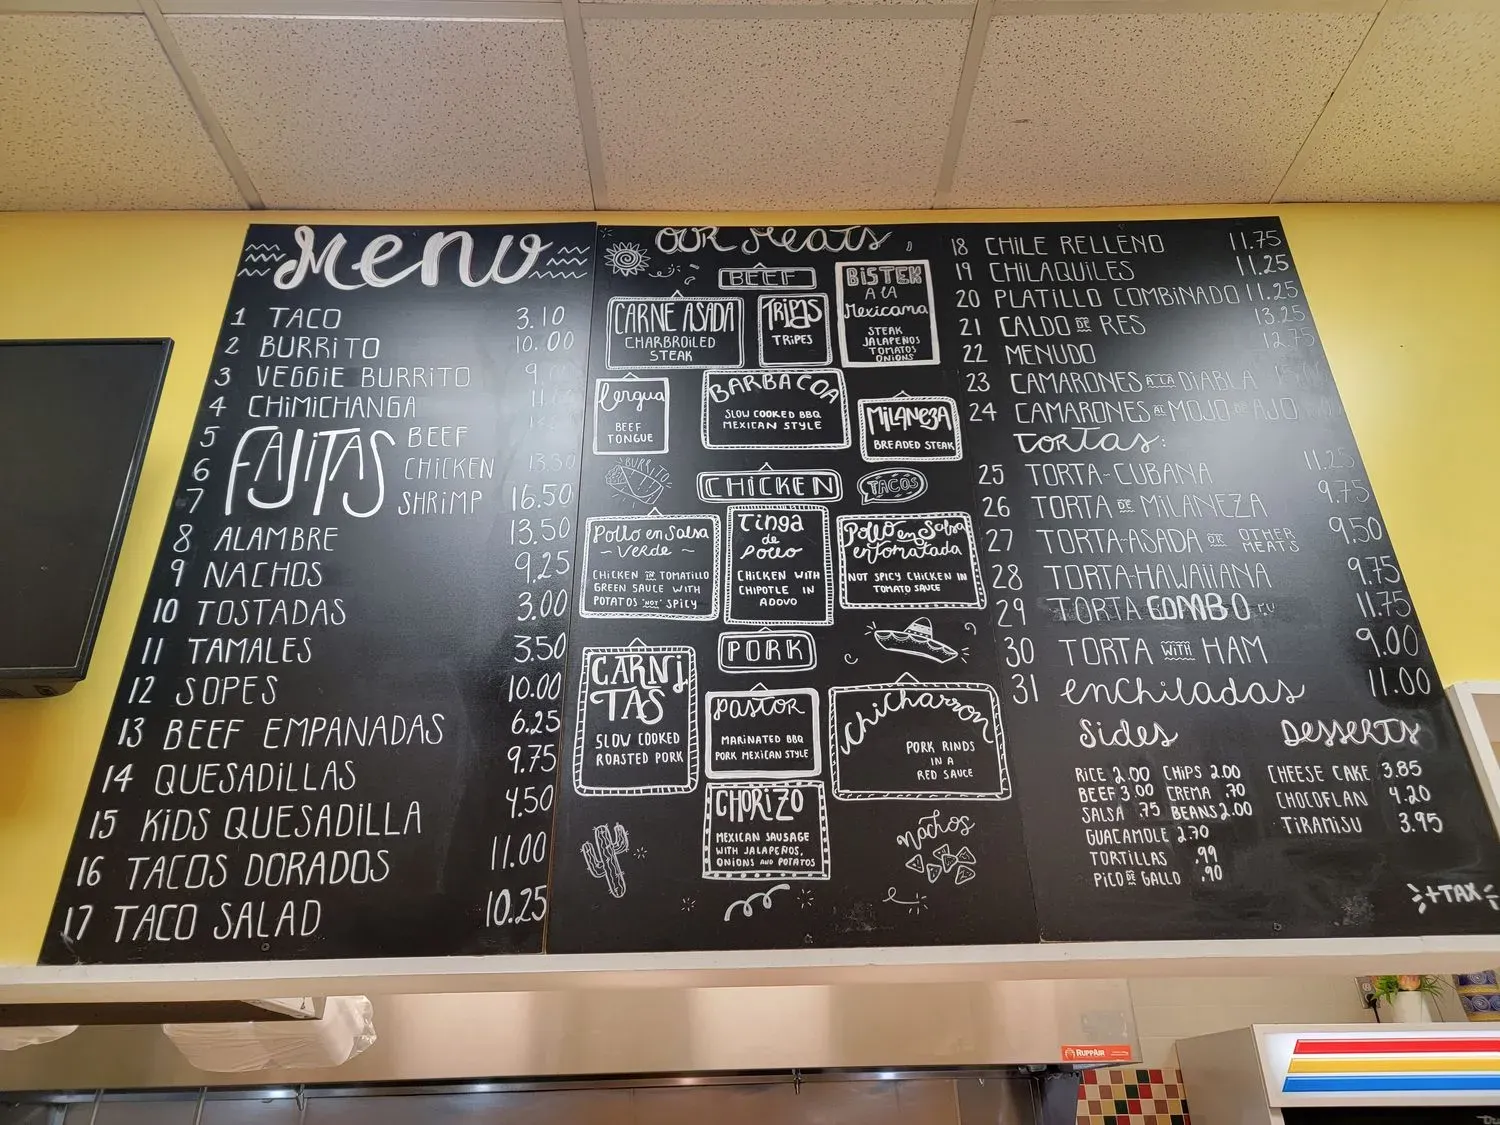 Menu
1 TACO 3.10
2 BURRITO 10.00
3 VEGGIE BURRITO
4 CHIMICHANGA
5 BEEF
6 FAJITAS CHICKEN 13.50
7 SHRIMP 16.50
8 ALAMBRE 13.50
9 NACHOS 9.25
10 TOSTADAS 3.00
11 TAMALES 3.50
12 SOPES 10.00
13 BEEF EMPANADAS 6.25
14 QUESADILLAS 9.75
15 KIDS QUESADILLA 4.50
16 TACOS DORADOS 11.00
17 TACO SALAD 10.25
OUR Meats
BEEF
CARNE ASADA
CHARBROILED
STEAK
TRIPAS
TRIPES
BISTEK
A LA
Mexicana
STEAK
JALAPEÑOS
TOMATOS
ONIONS
Lengua
BEEF
TONGUE
BARBACOA
SLOW COOKED BBQ
MEXICAN STYLE
MILANEZA
BREADED STEAK
BURRITO
CHICKEN
TACOS
Pollo en Salsa
~ Verde ~
CHICKEN IN TOMATILLO
GREEN SAUCE WITH
POTATOS "NOT" SPICY
Tinga
de
Pollo
CHICKEN WITH
CHIPOTLE IN
ADOVO
Pollo en Salsa
entomatada
NOT SPICY CHICKEN IN
TOMATO SAUCE
PORK
CARNI
TAS
SLOW COOKED
ROASTED PORK
Pastor
MARINATED BBQ
PORK MEXICAN STYLE
Chicharron
PORK RINDS
IN A
RED SAUCE
CHORIZO
MEXICAN SAUSAGE
WITH JALAPEÑOS,
ONIONS AND POTATOS
Nachos
18 CHILE RELLENO 11.75
19 CHILAQUILES 11.25
20 PLATILLO COMBINADO 11.25
21 CALDO DE RES 13.25
22 MENUDO 12.75
23 CAMARONES A LA DIABLA
24 CAMARONES AL MOJO DE AJO
TORTAS:
25 TORTA-CUBANA 11.25
26 TORTA DE MILANEZA 9.75
27 TORTA-ASADA OR OTHER MEATS 9.50
28 TORTA-HAWAIIANA 9.75
29 TORTA COMBO 11.75
30 TORTA WITH HAM 9.00
31 enchiladas 11.00
Sides
RICE 2.00 CHIPS 2.00
BEEF 3.00 CREMA .70
SALSA .75 BEANS 2.00
GUACAMOLE 2.70
TORTILLAS .99
PICO DE GALLO .90
Desserts
CHEESE CAKE 3.85
CHOCOFLAN 4.20
TIRAMISU 3.95
+TAX
RUPPAIR